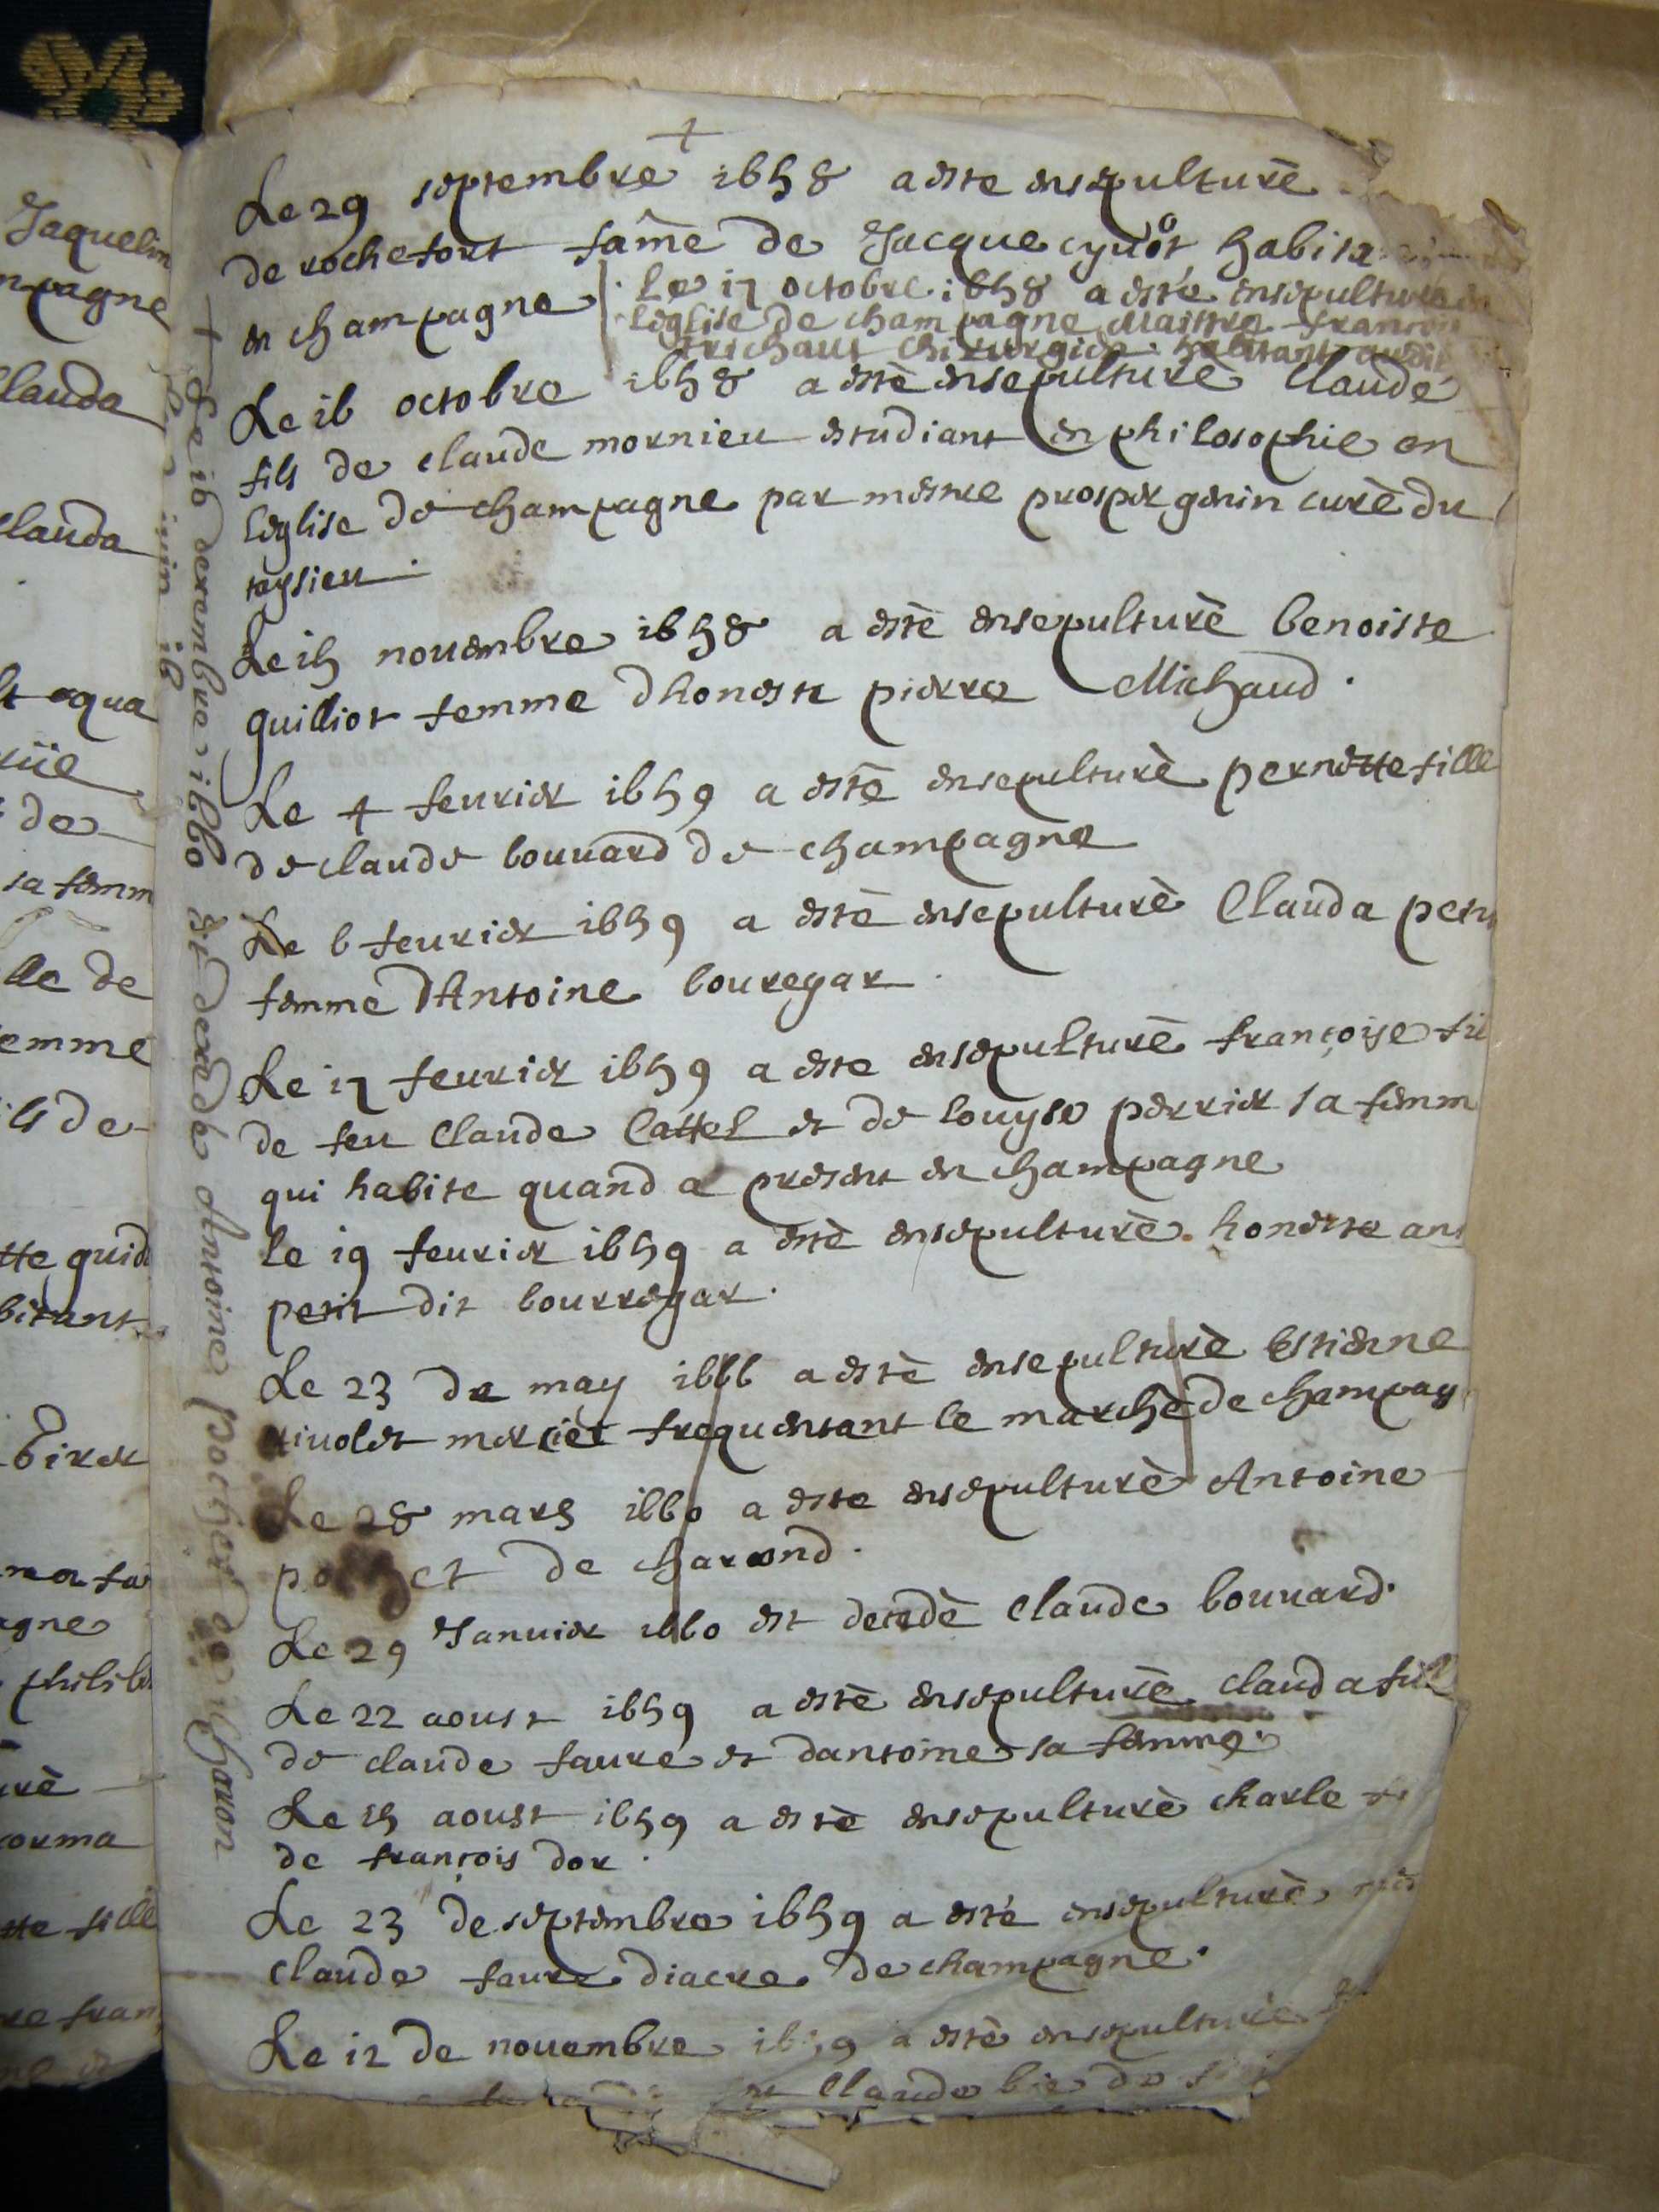 Jaquelin
mpagne
Clauda
Clauda
aqua
de
sa femm
lle de
emme
ils de
tte guid
bitant
agne
philib
orma
tte fille
re fran
Le 29 septembre 1658 a este ensepulturè
de rochefort fame de Jacque cyuot habita
en champagne
Le 17 octobre 1658 a esté ensepulturé
leglise de champagne Maistre françois
trichaut chirurgien habitant audit
Le 16 octobre 1658 a estè ensepulturè Claude
fils de claude mornieu estudiant en philosophie en
leglise de champagne par mestre prosper genin curè du
taysieu.
Le 15 nouembre 1658 a estè ensepulturè benoiste
guilliot femme dhoneste pierre Michaud.
Le 4 feurier 1659 a estè ensepulturè pernette fille
de claude bouuard de champagne
Le 6 feurier 1659 a estè ensepulturè Clauda peti
femme dAntoine bouregar
Le 17 feurier 1659 a este ensepulturè françoise fil
de feu Claude Cattel et de louyse perrier sa femm
qui habite quand a present en champagne
le 19 feurier 1659 a estè ensepulturè honeste ant
petit dit bourregar.
Le 23 de may 1666 a estè ensepulturè Estienne
riuolet mercier frequentant le marchè de champag
Le 28 mars 1660 a este ensepulturè Antoine
pochet de charond.
Le 29 Januier 1660 est decedè Claude bouuard.
Le 22 aoust 1659 a estè ensepulturè clauda fill
de claude faure et dantoine sa femme.
Le 15 aoust 1659 a estè ensepulturè charle fi
de françois dor.
Le 23 de septembre 1659 a esté ensepulturè
claude faure diacre de champagne.
Le 12 de nouembre 1659 a estè ensepulturè
Claude
+ Le 16 decembre 1660 est decedè Antoine pochet de charon